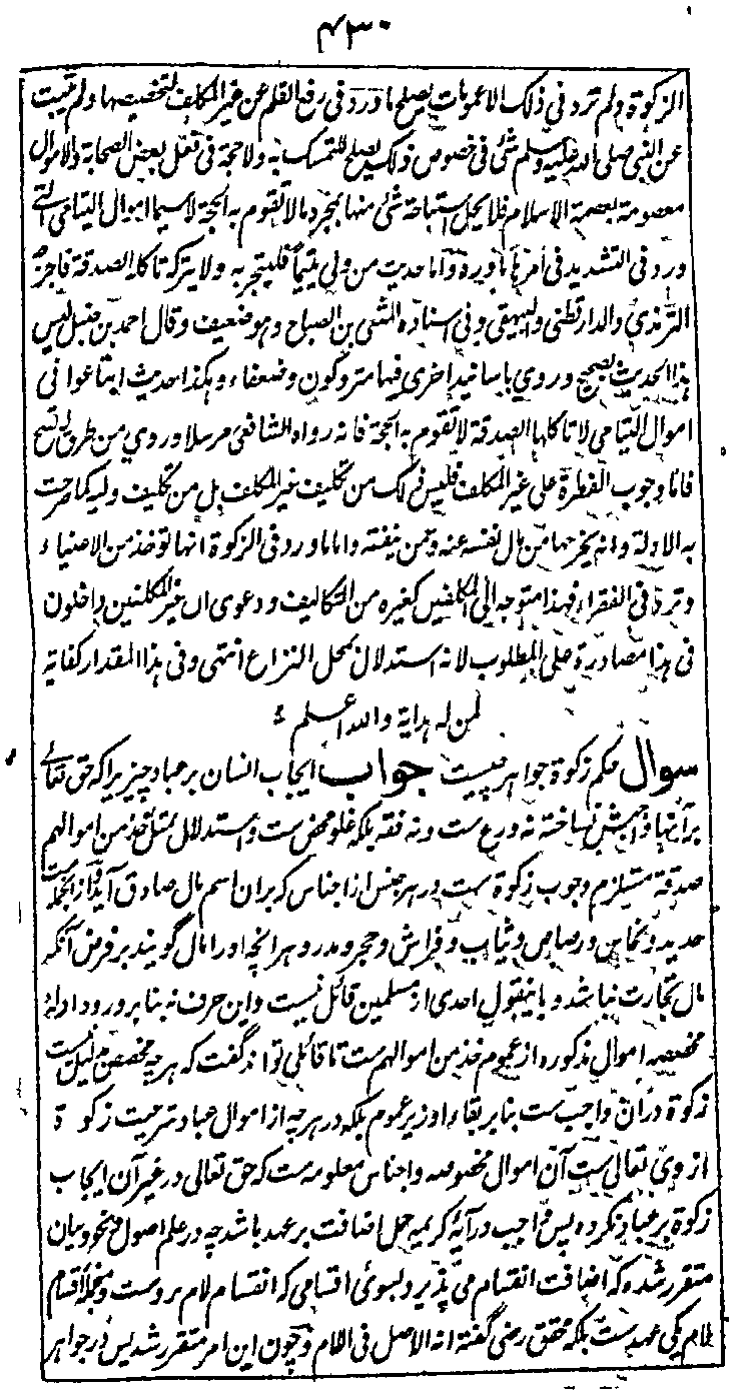 ۴۳۰
الزکوة ولم ترد فی ذلک الا عمومات یصلح ما ورد فی رفع القلم عن غیر المکلف لتخصیصها ولم یثبت
عن النبی صلی الله علیه وسلم شئ فی خصوص ذلک یصلح للتمسک به ولا حجة فی نقل بعض الصحابة والاموال
معصومة بعصمة الاسلام فلا یحل استباحة شئ منها بمجرد ما لا تقوم به الحجة لا سیما اموال الیتامی التی
ورد فی التشدید فی امرها ما ورد واما حدیث من ولی یتیما فلیتجر به ولا یترکه تاکله الصدقة فاخرجه
الترمذی والدارقطنی والبیهقی وفی اسناده المثنی بن الصباح وهو ضعیف وقال احمد بن حنبل لیس
هذا الحدیث بصحیح وروی باسانید اخری فیها متروکون وضعفاء وهکذا حدیث ابتاعوا فی
اموال الیتامی لا تاکلها الصدقة لا تقوم به الحجة فانه رواه الشافعی مرسلا وروی من طرق لا تصح
فاما وجوب الفطرة علی غیر المکلف فلیس ذلک من تکلیف غیر المکلف بل من تکلیف ولیه کما صرحت
به الادلة وانه یخرجها من مال نفسه عنه وعمن ینفقه واما ما ورد فی الزکوة انها توخذ من الاغنیاء
وترد فی الفقراء فهذا متوجه الی المکلفین کغیره من التکالیف ودعوی ان غیر المکلفین داخلون
فی هذا مصادرة علی المطلوب لانه استدلال بمحل النزاع انتهی وفی هذا المقدار کفایة
لمن له هدایة والله اعلم
سوال حکم زکوة جواهر چیست جواب ایجاب انسان بر عباد چیزیرا که حق تعالے
بر آنها واجبش نساخته نه ورع ست ونه فقه بلکه غلو محض ست واستدلال بمثل خذ من اموالهم
صدقة مستلزم وجوب زکوة ست در هر جنس از اجناس که بران اسم مال صادق آید وازانجمله است
حدید ونحاس ورصاص وثیاب وفراش وحجر ومدر وهرانچه اورا مال گویند بر فرض آنکه
مال تجارت نباشد وباینقول احدی از مسلمین قائل نیست واین حرف نه بنابر ورود ادله
مخصصه اموال مذکوره از عموم خذ من اموالهم ست تا قائلی تواند گفت که هر چه مخصص بدلیل نیست
زکوة دران واجب ست بنابر بقاء او زیر عموم بلکه در هر چه از اموال عباد شرعیت زکوة
از وی تعالی ست آن اموال مخصوصه واجناس معلومه ست که حق تعالی در غیر آن ایجاب
زکوة بر عباد نکرده پس واجب در آیۀ کریمه حمل اضافت بر عهد باشد چه در علم اصول ونحو وبیان
متقرر شده که اضافت انقسام می پذیرد بسوئ اقسامی که انقسام لام بروست ومنجملۀ اقسام
لام یکی عهدست بلکه محقق رضی گفته انه الاصل فی اللام وچون این امر متقرر شد پس در جواهر